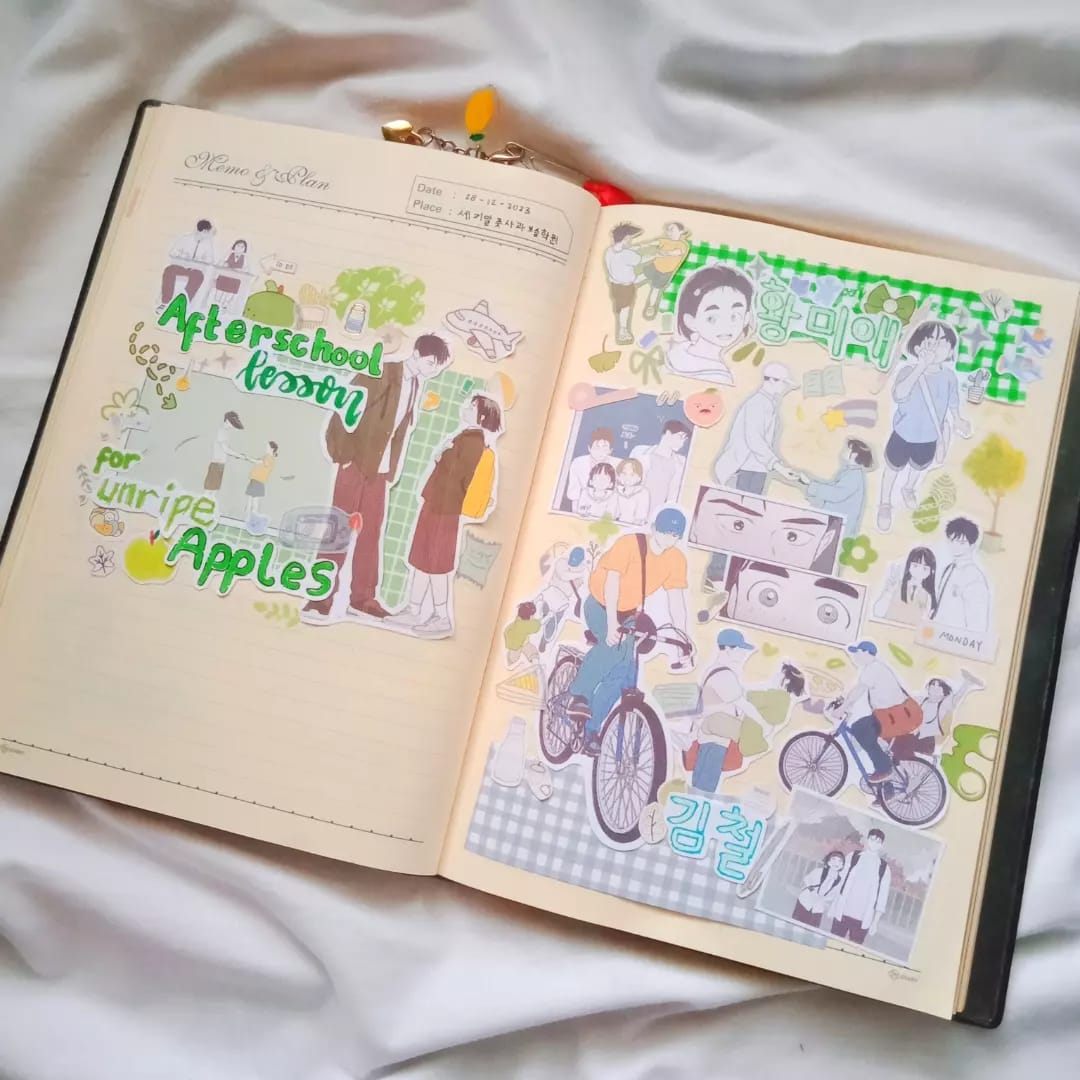 Memo & Plan
Date : 28-12-2023
Place : 세기말 풋사과 보습학원
Afterschool
lesson
for
unripe
Apples
황미애
MONDAY
김철